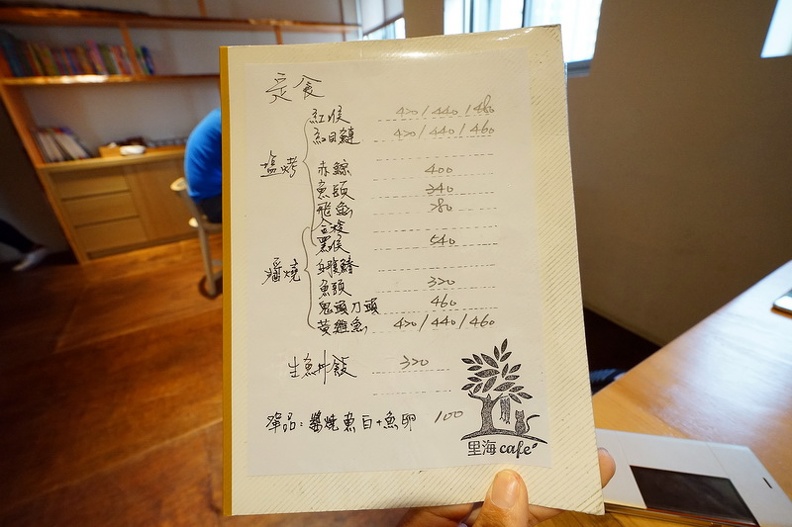 定食
塩烤
紅喉 420/440/460
紅目鰱 420/440/460
赤鯮 400
魚頭 340
飛魚 280
黑喉 540
醬燒
白腹鯖
魚頭 320
鬼頭刀頭 460
黃雞魚 420/440/460
生魚丼飯 320
單品:醬燒魚白+魚卵 100
里海cafe'